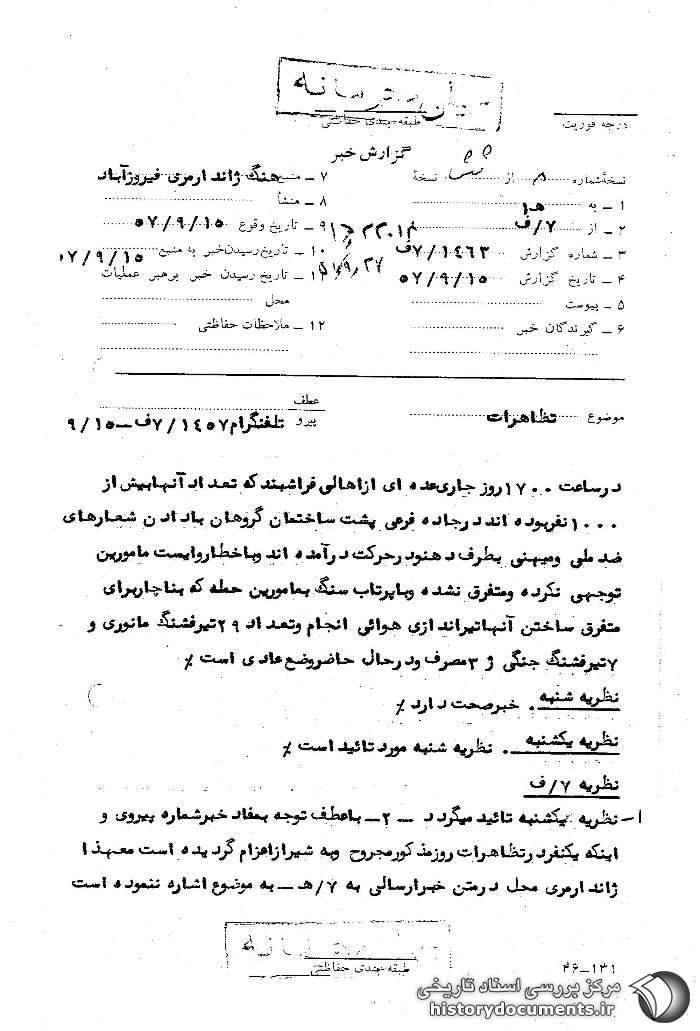 خیلی محرمانه
طبقه بندی حفاظتی
درجه فوریت
گزارش خبر
نسخه شماره ۵ از نسخهٔ
۱ – به ۱ه
۲ – از ۷/ف
۳ – شماره گزارش ۷/۱۴۶۳ف
۴ – تاریخ گزارش ۵۷/۹/۱۵
۵ – پیوست
۶ – گیرندگان خبر
۷ – منبع هنگ ژاندارمری فیروزآباد
۸ – منشأ
۹ – تاریخ وقوع ۵۷/۹/۱۵
۱۰ – تاریخ رسیدن خبر به منبع ۵۷/۹/۱۵
۱۱ – تاریخ رسیدن خبر برهبر عملیات
محل
۱۲ – ملاحظات حفاظتی
موضوع تظاهرات
عطف
پیرو تلفنگرام ۷/۱۴۵۷ف – ۹/۱۵
درساعت ۱۷۰۰ روز جاری عده ای ازاهالی فراشبند که تعداد آنهابیش از
۱۰۰۰ نفربوده اند درجاده فرعی پشت ساختمان گروهان بادادن شعارهای
ضد ملی ومیهنی بطرف دهنود رحرکت درآمده اند وباخطاروایست مامورین
توجهی نکرده ومتفرق نشده وباپرتاب سنگ بمامورین حمله که بناچاربرای
متفرق ساختن آنهاتیراندازی هوائی انجام وتعداد ۲۹ تیرفشنگ مانوری و
۷ تیرفشنگ جنگی ژ ۳ مصرف ودرحال حاضروضع عادی است ٪
نظریه شنبه . خبرصحت دارد ٪
نظریه یکشنبه . نظریه شنبه مورد تائید است ٪
نظریه ۷/ف
۱– نظریه یکشنبه تائید میگردد – ۲– باعطف توجه بمفاد خبرشماره پیروی و
اینکه یکنفردرتظاهرات روزمذکورمجروح وبه شیرازاعزام گردیده است معهذا
ژاندارمری محل درمتن خبرارسالی به ۷/هـ – به موضوع اشاره ننموده است
طبقه بندی حفاظتی
۴۶–۱۳۱
مرکز بررسی اسناد تاریخی
historydocuments.ir